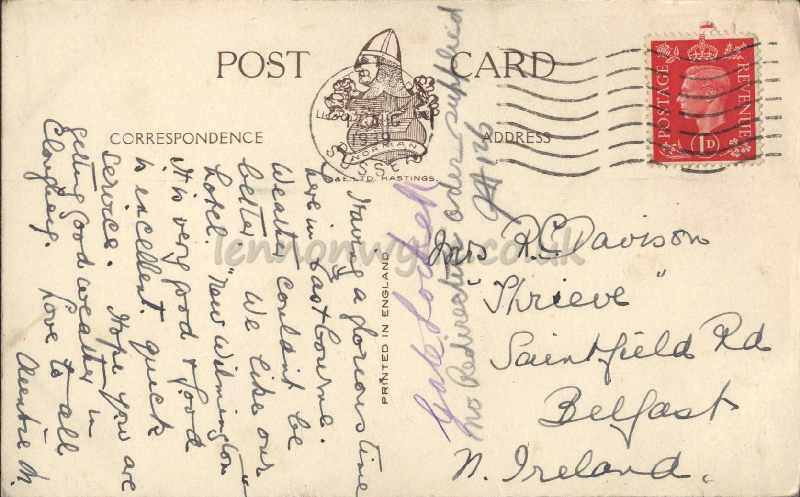 POST CARD
CORRESPONDENCE
ADDRESS
NORMAN
LTD. HASTINGS.
SUSSEX
POSTAGE
REVENUE
1D
PRINTED IN ENGLAND
Having a glorious time
here in Eastbourne.
Weather couldn't be
better. We like our
hotel. "New Wilmington"
It is very good & food
is excellent. quick
service. Hope you are
getting good weather in
Cloughey. Love to all
Auntie M.
No Redirection order supplied
Mrs R. C. Davison
"Thrieve"
Saintfield Rd
Belfast
N. Ireland.
lennonwylie.co.uk